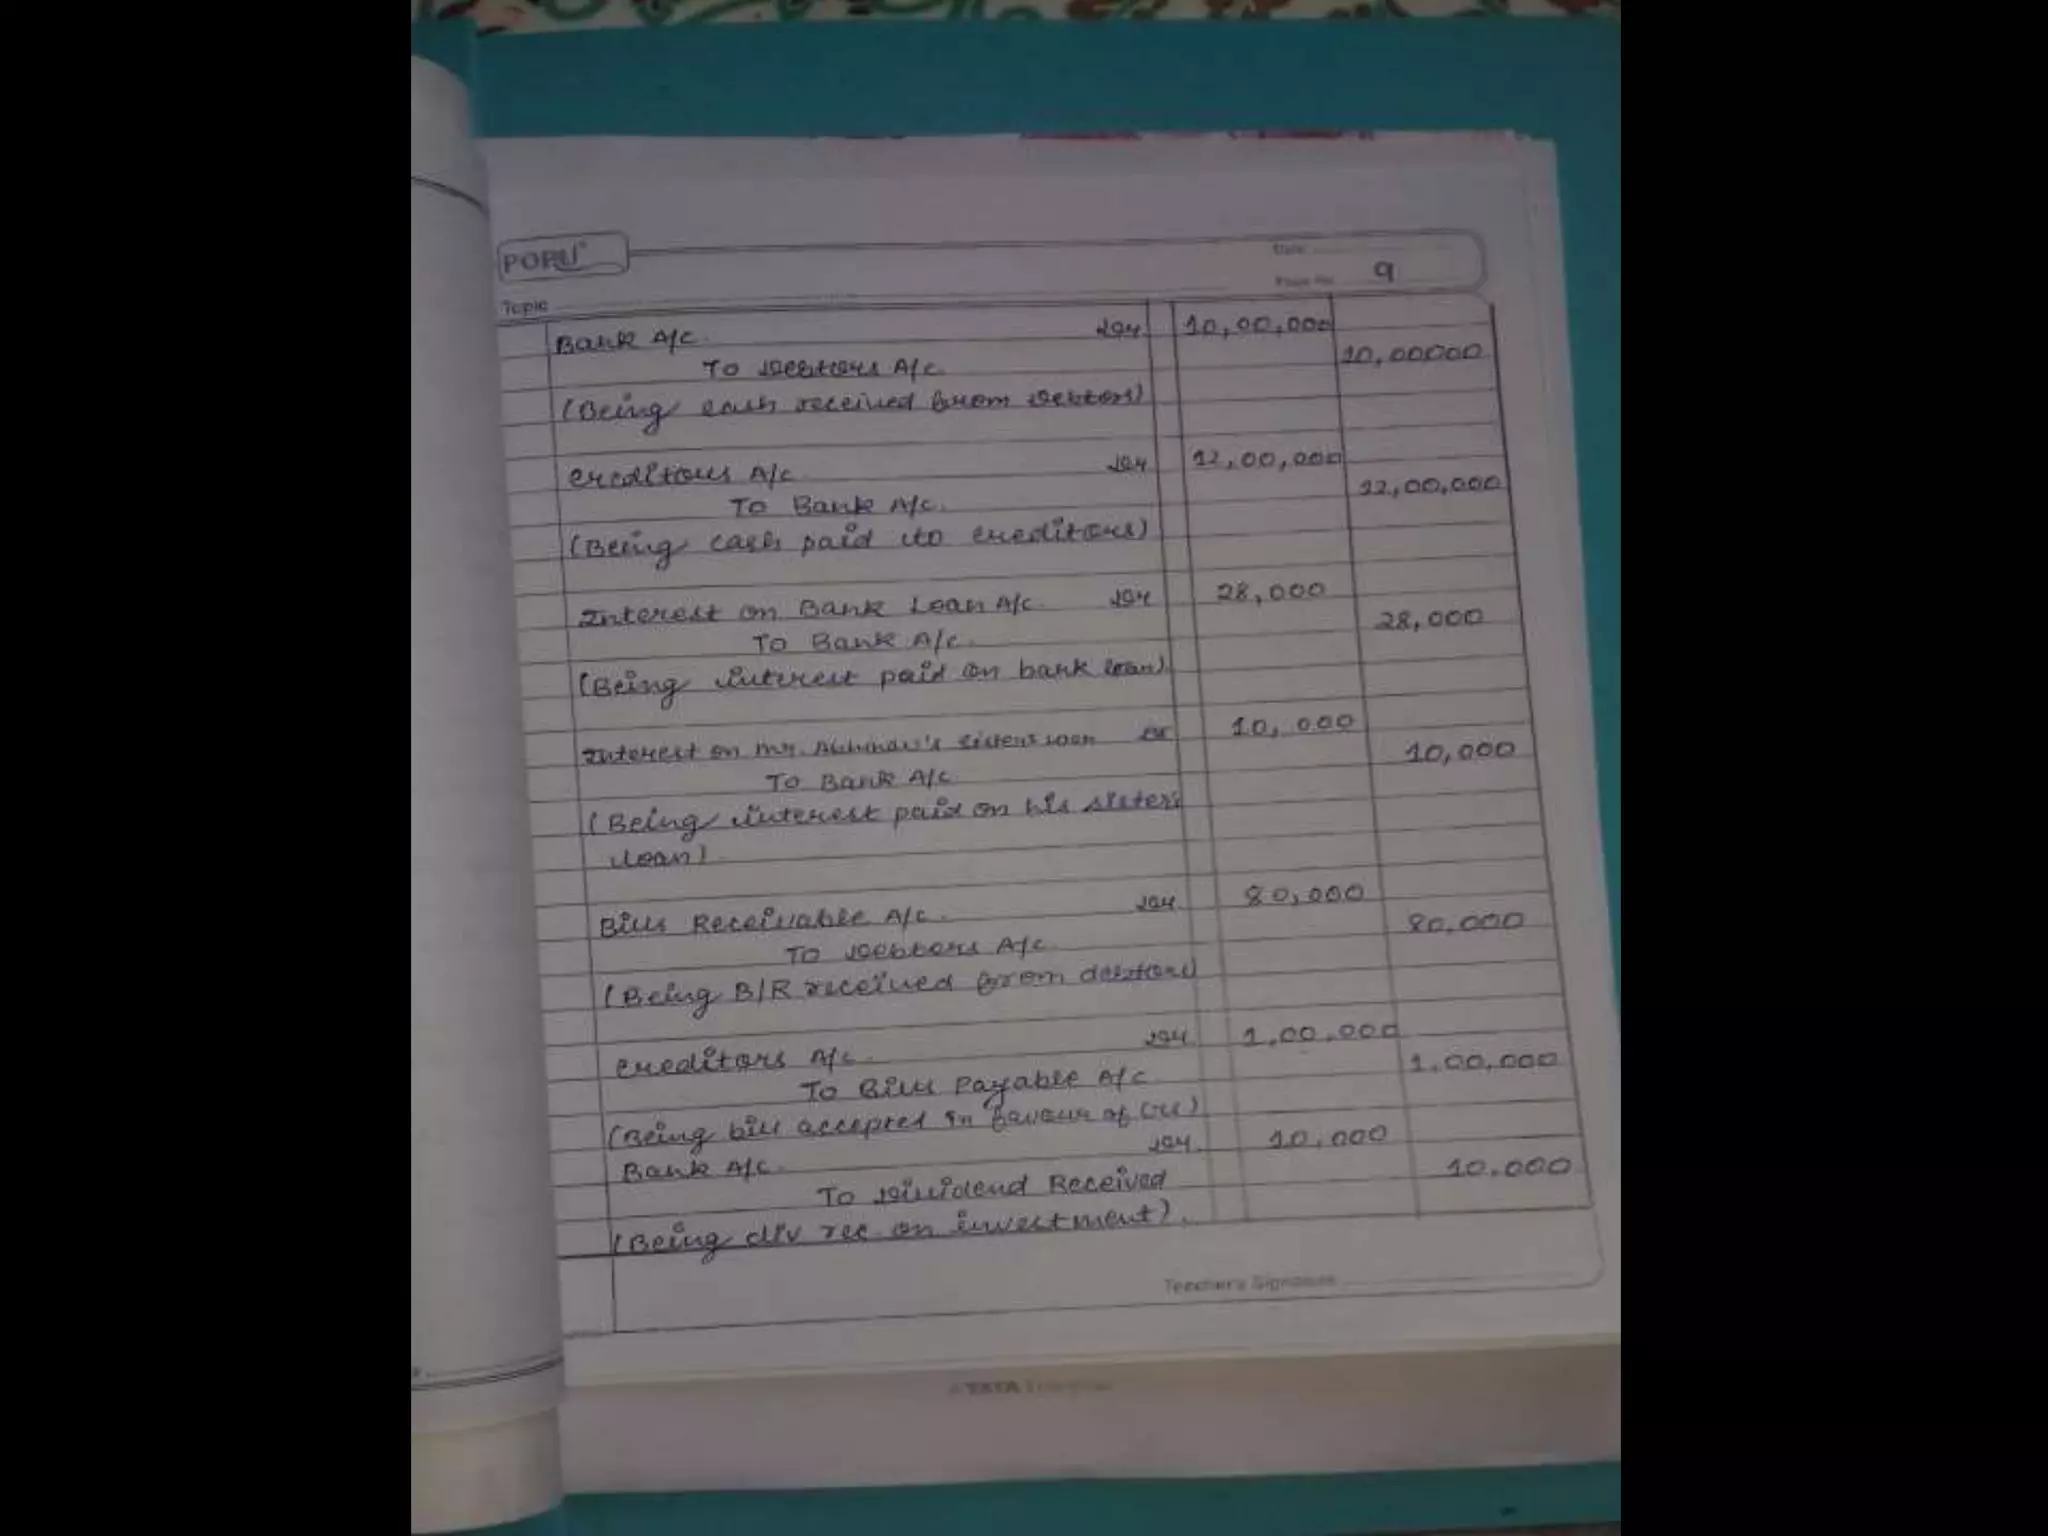 POPU
Date
Page No. 9
Topic
Bank A/c. Dr 10,00,000
To Debtors A/c 10,00000
(Being cash received from debtors)
Creditors A/c Dr 12,00,000
To Bank A/c. 12,00,000
(Being cash paid to creditors)
Interest on Bank Loan A/c. Dr 28,000
To Bank A/c. 28,000
(Being interest paid on bank loan)
Interest on Mr. Abhinav's sisters loan Dr 10,000
To Bank A/c 10,000
(Being interest paid on his sister's
loan)
Bills Receivable A/c. Dr 80,000
To Debtors A/c 80,000
(Being B/R received from debtors)
Creditors A/c. Dr 1,00,000
To Bills Payable A/c 1,00,000
(Being bill accepted in favour of Crs)
Bank A/c. Dr 10,000
To Dividend Received 10,000
(Being div rec. on investment).
Teacher's Signature
A TATA Enterprise